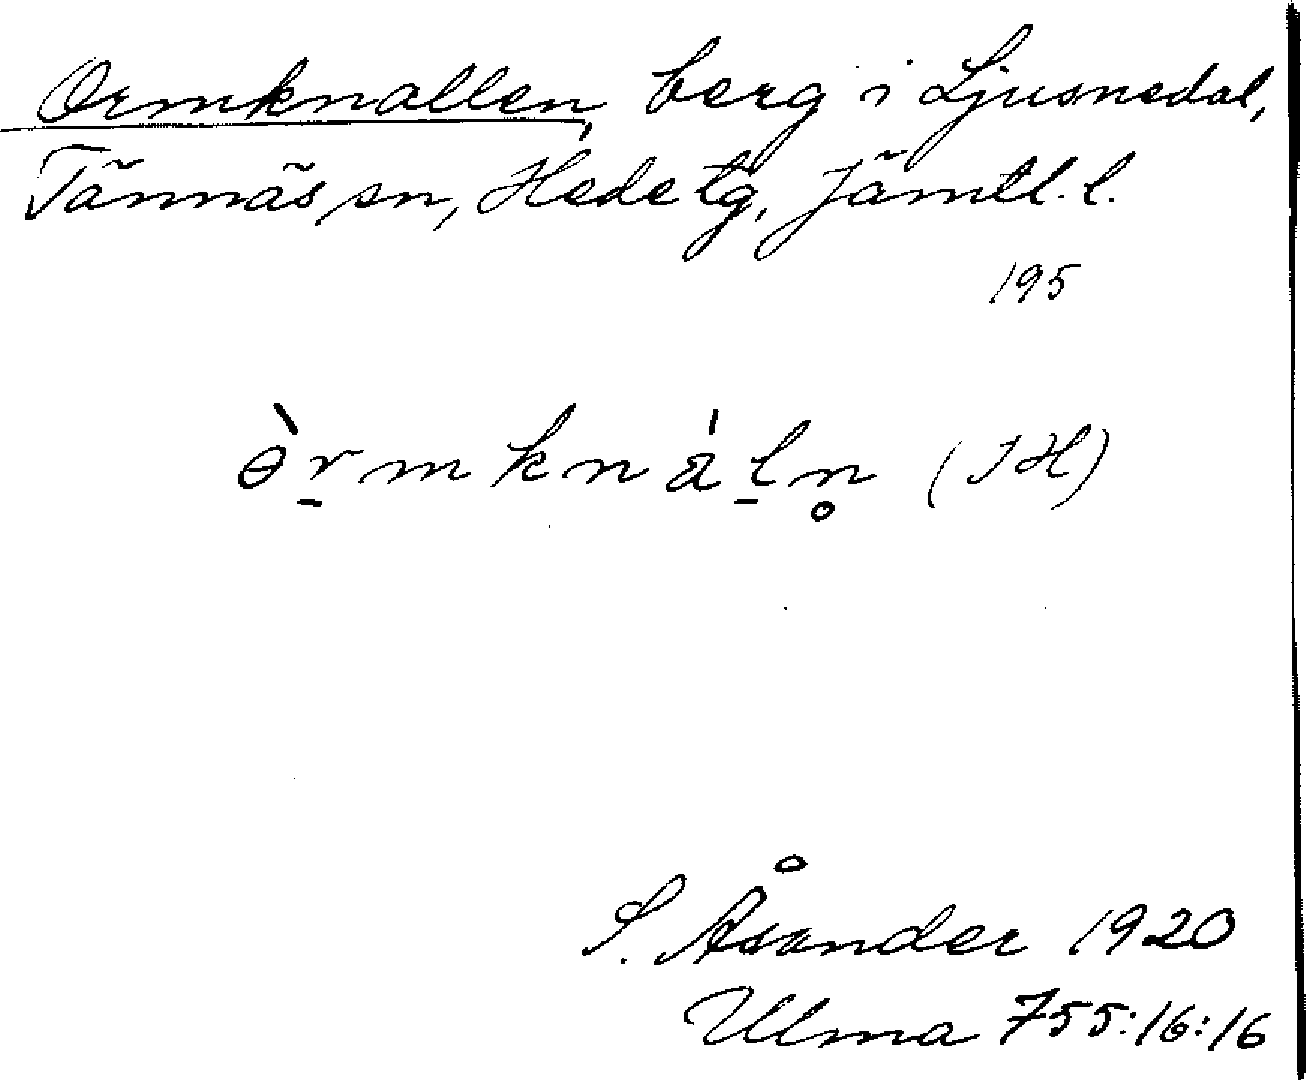 Ormknallen, berg i Ljusnedal,
Tännäs sn, Hede tg, Jämtl. l.
195
ɵ̀r̠mknál̠n̥ (JH)
S. Åsander 1920
Ulma 755:16:16